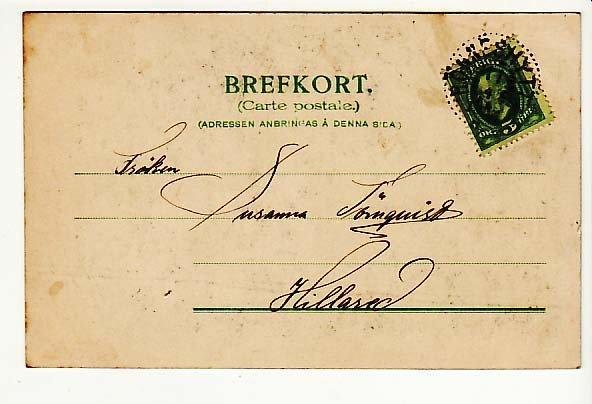 BREFKORT.
(Carte postale.)
(ADRESSEN ANBRINGAS Å DENNA SIDA)
Fröken
Susanna Törnquist
Hillared
5